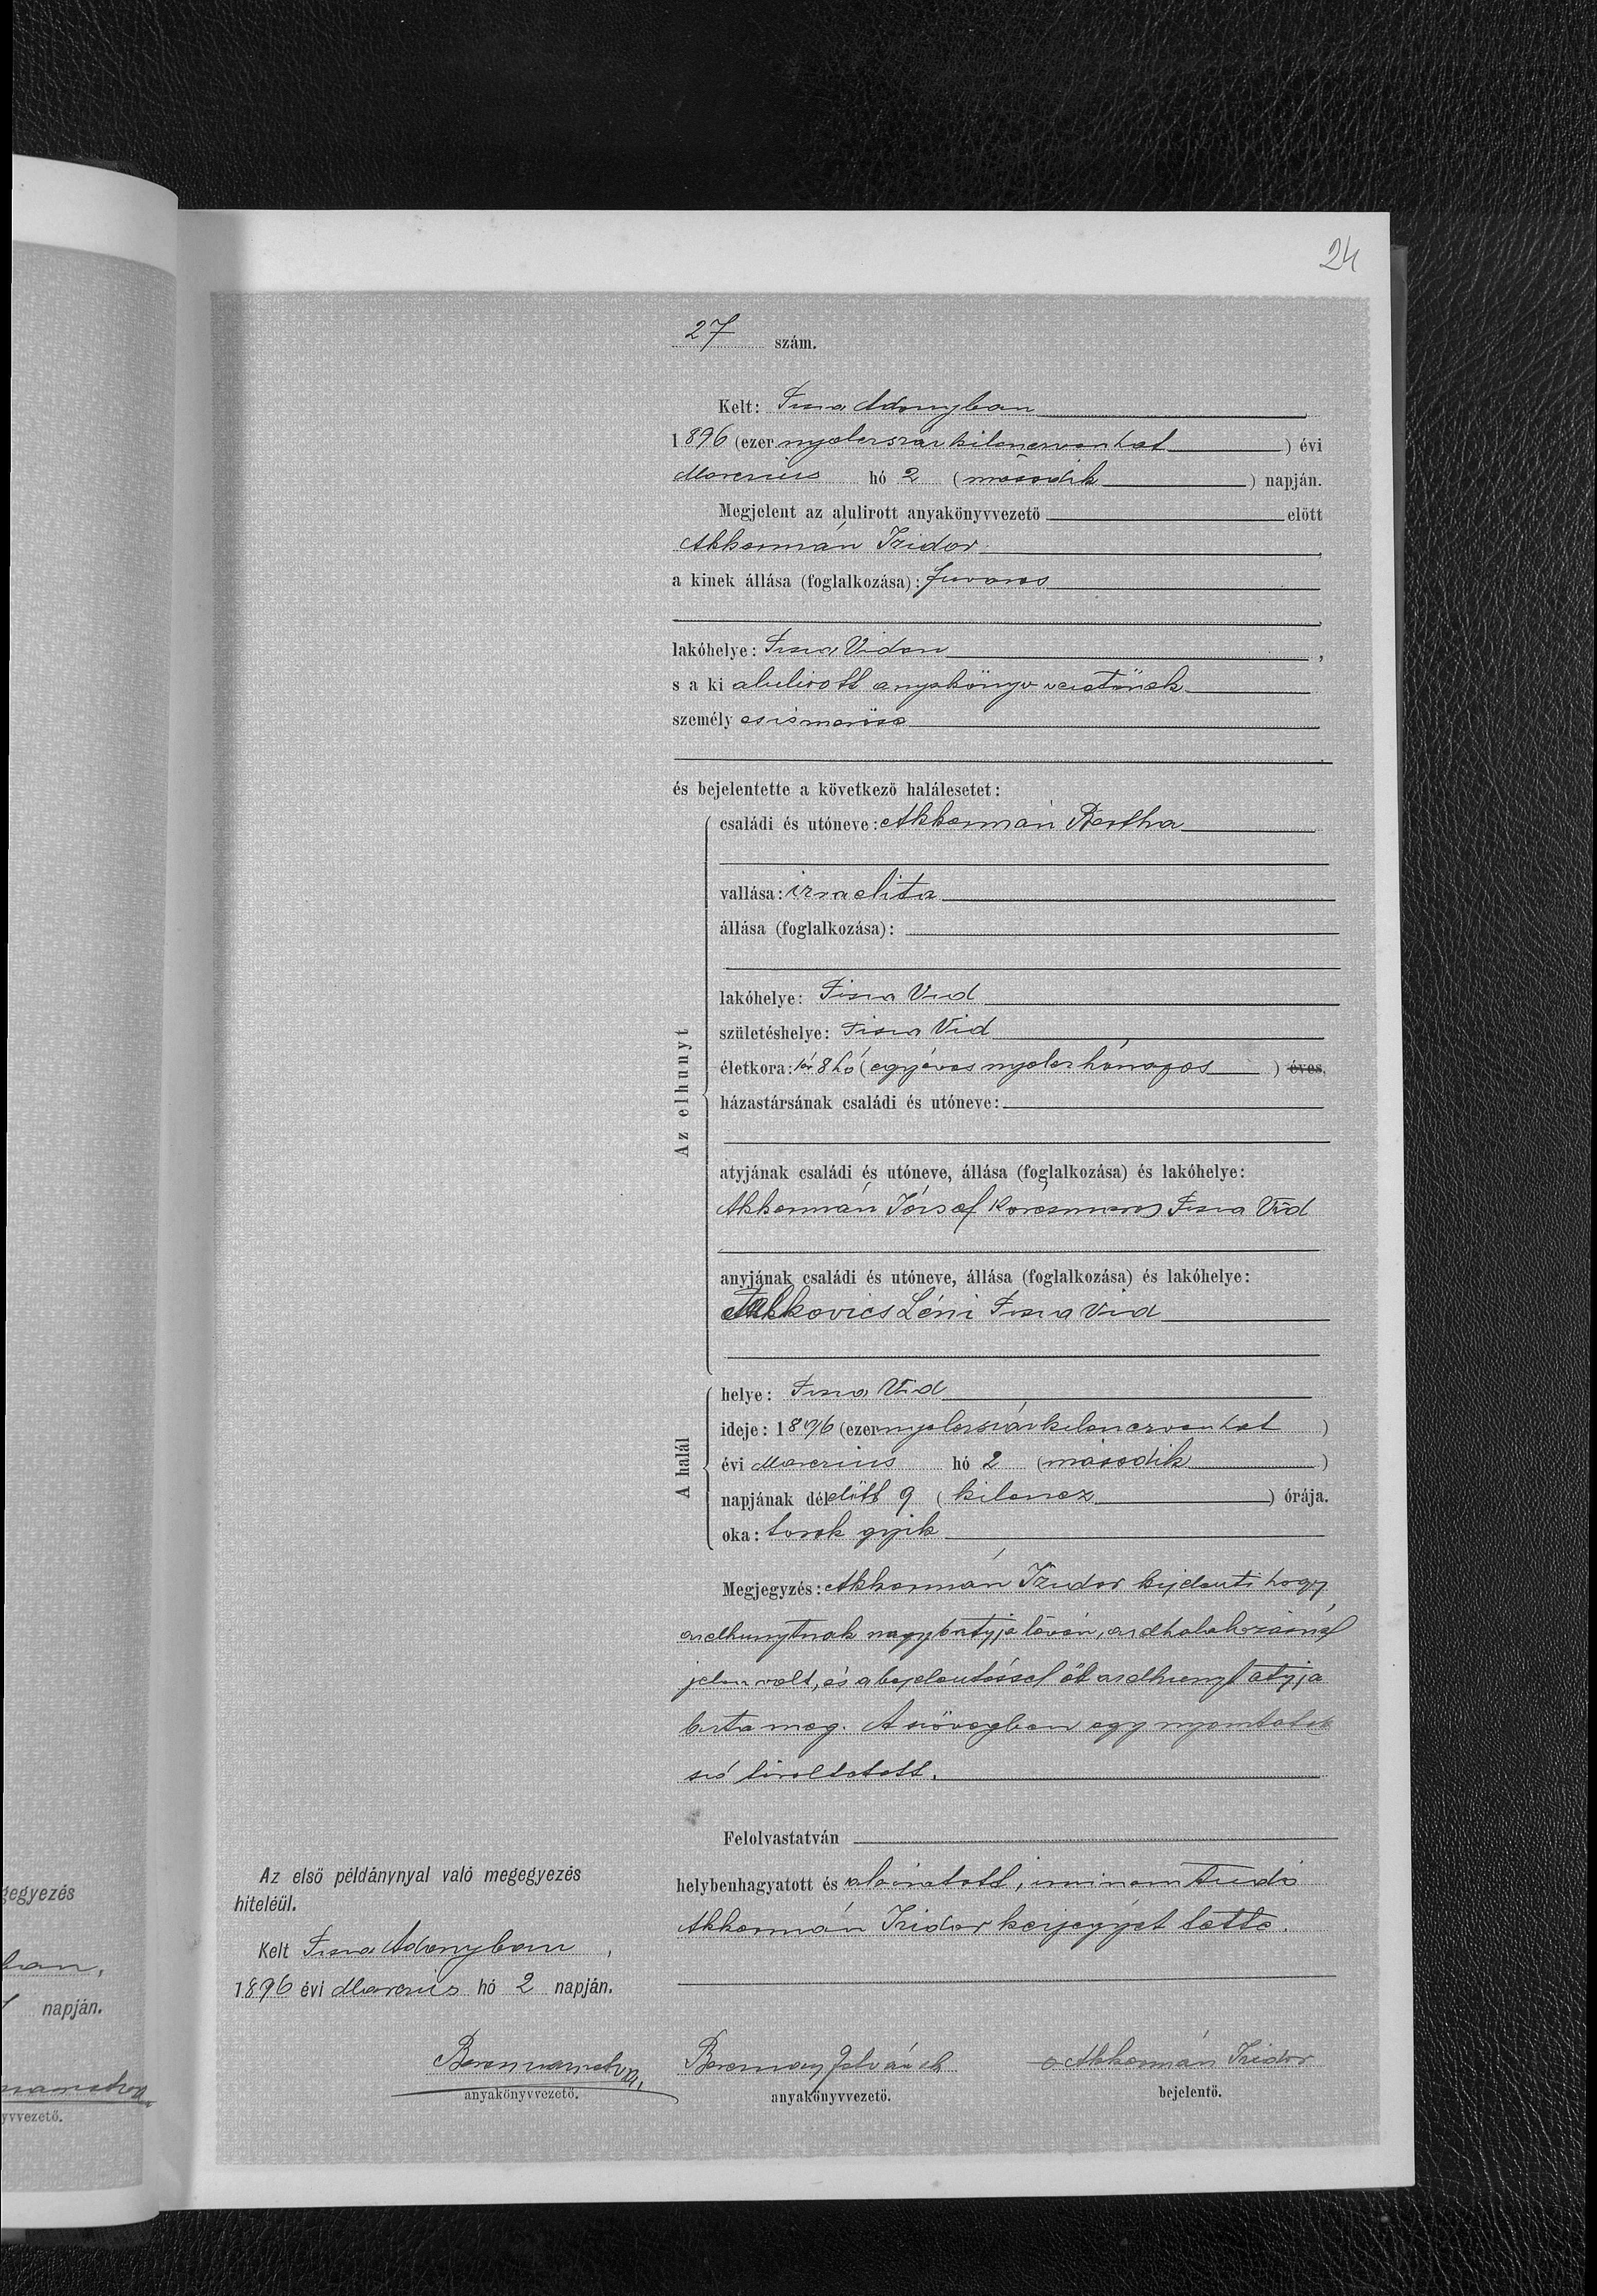 24
27 szám.
Kelt: Tisza Adonyban
1896 (ezer nyolczszáz kilenczvenhat) évi
Marczius hó 2 (második) napján.
Megjelent az alulirott anyakönyvvezető előtt
Akkermán Izidor,
a kinek állása (foglalkozása): fuvaros
lakóhelye: Tisza Viden,
s a ki alulirott anyakönyv vezetőnek
személy esismerőse
és bejelentette a következő halálesetet:
Az elhunyt
családi és utóneve: Akkermán Bertha
vallása: izraelita
állása (foglalkozása):
lakóhelye: Tisza Vid
születéshelye: Tisza Vid
életkora: 1 év 8 hó (egy éves nyolcz hónapos) éves.
házastársának családi és utóneve:
atyjának családi és utóneve, állása (foglalkozása) és lakóhelye:
Akkermán József korcsmáros Tisza Vid
anyjának családi és utóneve, állása (foglalkozása) és lakóhelye:
Léni Tisza Vid
A halál
helye: Tisza Vid
ideje: 1896 (ezer nyolczszáz kilenczvenhat)
évi Marczius hó 2 (második)
napjának délelőtt 9 (kilencz) órája.
oka: torok gyik
Megjegyzés: Akkermán Izidor kijelenti hogy
azelhunytnak nagybatyja lévén, azelhalálozásnál
jelen volt, és a bejelentéssel őt azelhunyt atyja
bizta meg. A szövegben egy nyomtatott
szó töröltetett.
Felolvastatván
helybenhagyatott és aláiratott, irni nem tudó
Akkermán Izidor kézjegyét tette.
Az első példánynyal való megegyezés
hiteléül.
Kelt Tisza Adonyban,
1896 évi Marczius hó 2 napján.
anyakönyvvezető.
anyakönyvvezető.
Akkermán Izidor
bejelentő.
gegyezés
ban,
napján.
yvvezető.